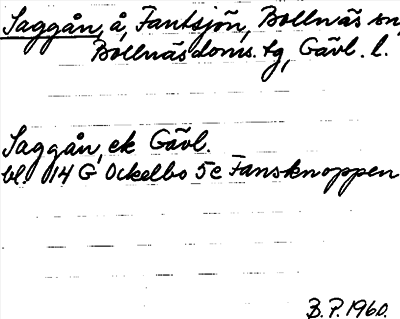 Saggån, å, Fantsjön, Bollnäs sn,
Bollnäs doms. tg, Gävl. l.
Saggån, ek Gävl.
bl. 14 G Ockelbo 5c Fansknoppen
B.P. 1960.